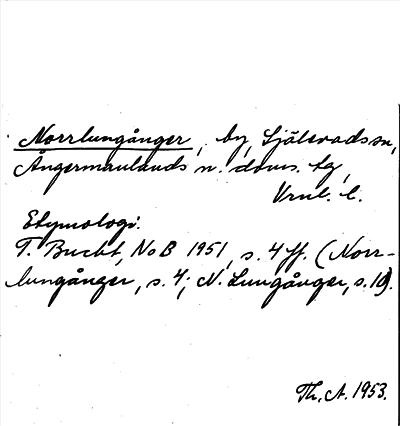 Norrlungånger, by, Själevads sn,
Ångermanlands n. doms. tg,
Vrnl. l.
Etymologi.
T. Bucht, NoB 1951, s. 4 ff. (Norr-
lungånger, s. 4; N. Lungånger, s. 10).
Th. A. 1953.